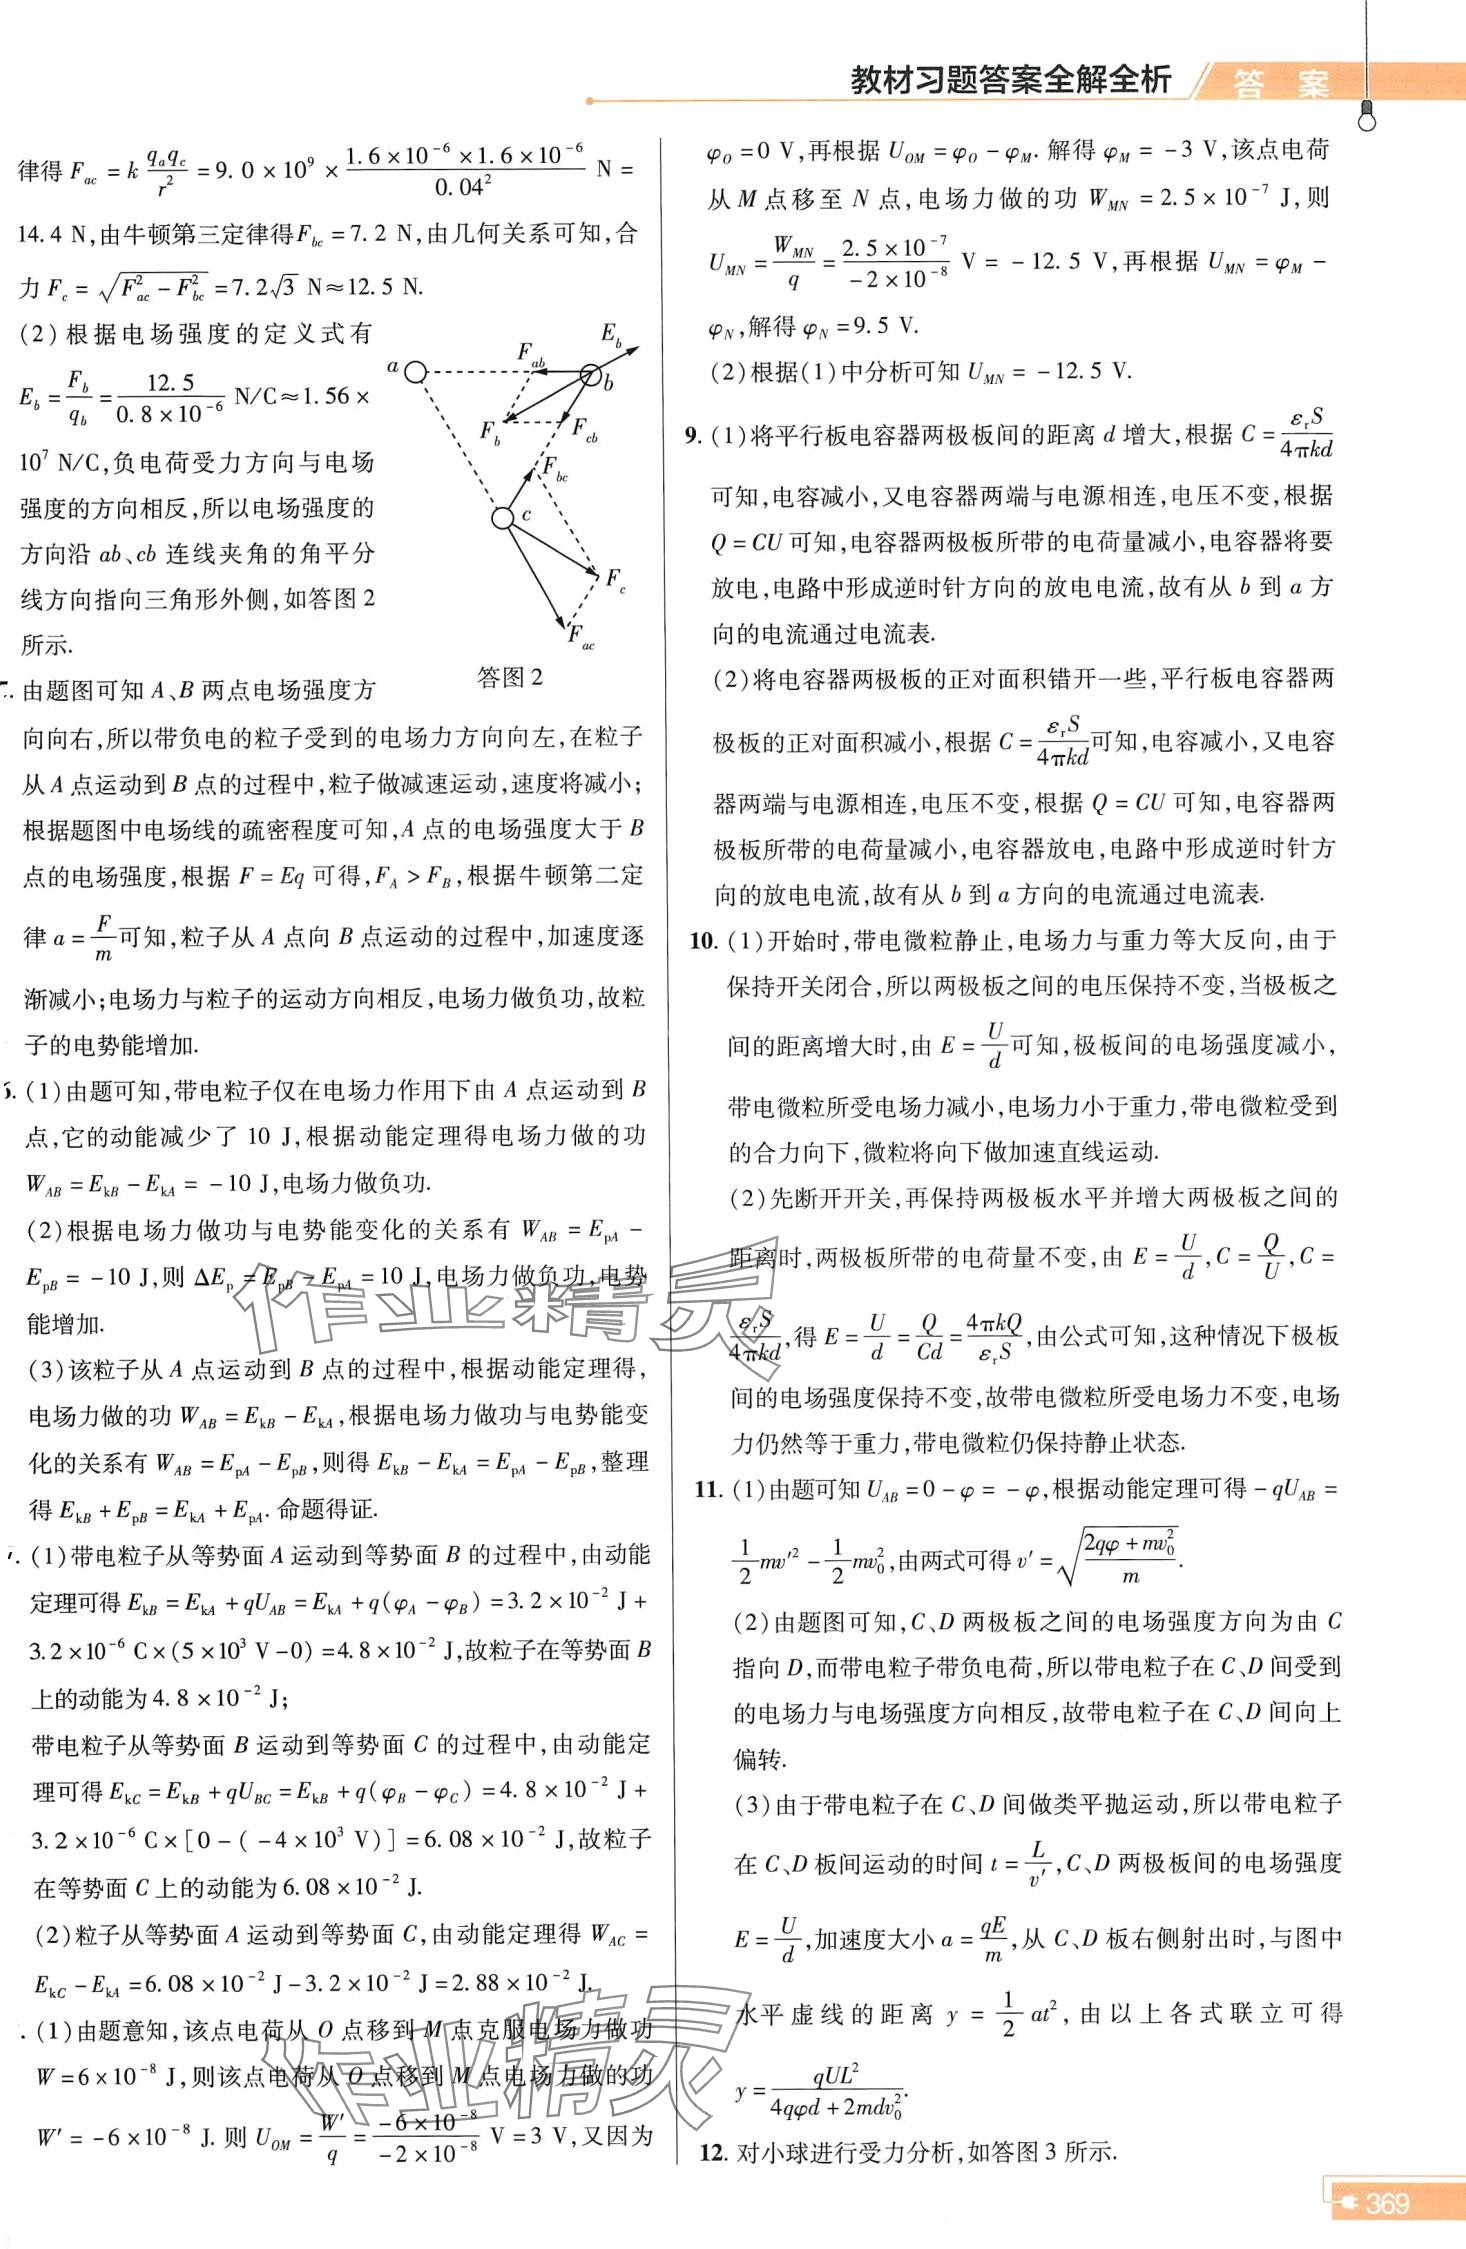 教材习题答案全解全析
答 案
律得 F_ac = k q_a q_c / r² = 9.0×10⁹ × (1.6×10⁻⁶×1.6×10⁻⁶)/0.04² N =
14.4 N,由牛顿第三定律得F_bc = 7.2 N,由几何关系可知,合
力 F_c = √(F²_ac − F²_bc) = 7.2√3 N≈12.5 N.
(2)根据电场强度的定义式有
E_b = F_b/q_b = 12.5/(0.8×10⁻⁶) N/C≈1.56×
10⁷ N/C,负电荷受力方向与电场
强度的方向相反,所以电场强度的
方向沿 ab、cb 连线夹角的角平分
线方向指向三角形外侧,如答图 2
所示.
a
F_ab
E_b
b
F_b
F_cb
F_bc
c
F_c
F_ac
答图 2
由题图可知 A、B 两点电场强度方
向向右,所以带负电的粒子受到的电场力方向向左,在粒子
从 A 点运动到 B 点的过程中,粒子做减速运动,速度将减小;
根据题图中电场线的疏密程度可知,A 点的电场强度大于 B
点的电场强度,根据 F = Eq 可得,F_A > F_B,根据牛顿第二定
律 a = F/m 可知,粒子从 A 点向 B 点运动的过程中,加速度逐
渐减小;电场力与粒子的运动方向相反,电场力做负功,故粒
子的电势能增加.
(1)由题可知,带电粒子仅在电场力作用下由 A 点运动到 B
点,它的动能减少了 10 J,根据动能定理得电场力做的功
W_AB = E_kB − E_kA = −10 J,电场力做负功.
(2)根据电场力做功与电势能变化的关系有 W_AB = E_pA −
E_pB = −10 J,则 ΔE_p = E_pB − E_pA = 10 J,电场力做负功,电势
能增加.
(3)该粒子从 A 点运动到 B 点的过程中,根据动能定理得,
电场力做的功 W_AB = E_kB − E_kA,根据电场力做功与电势能变
化的关系有 W_AB = E_pA − E_pB,则得 E_kB − E_kA = E_pA − E_pB,整理
得 E_kB + E_pB = E_kA + E_pA. 命题得证.
(1)带电粒子从等势面 A 运动到等势面 B 的过程中,由动能
定理可得 E_kB = E_kA + qU_AB = E_kA + q(φ_A − φ_B) = 3.2×10⁻² J+
3.2×10⁻⁶ C×(5×10³ V−0) = 4.8×10⁻² J,故粒子在等势面 B
上的动能为 4.8×10⁻² J;
带电粒子从等势面 B 运动到等势面 C 的过程中,由动能定
理可得 E_kC = E_kB + qU_BC = E_kB + q(φ_B − φ_C) = 4.8×10⁻² J+
3.2×10⁻⁶ C×[0−(−4×10³ V)] = 6.08×10⁻² J,故粒子
在等势面 C 上的动能为 6.08×10⁻² J.
(2)粒子从等势面 A 运动到等势面 C,由动能定理得 W_AC =
E_kC − E_kA = 6.08×10⁻² J−3.2×10⁻² J = 2.88×10⁻² J.
(1)由题意知,该点电荷从 O 点移到 M 点克服电场力做功
W = 6×10⁻⁸ J,则该点电荷从 O 点移到 M 点电场力做的功
W′ = −6×10⁻⁸ J. 则 U_OM = W′/q = (−6×10⁻⁸)/(−2×10⁻⁸) V = 3 V,又因为
φ_O = 0 V,再根据 U_OM = φ_O − φ_M. 解得 φ_M = −3 V,该点电荷
从 M 点移至 N 点,电场力做的功 W_MN = 2.5×10⁻⁷ J,则
U_MN = W_MN/q = (2.5×10⁻⁷)/(−2×10⁻⁸) V = −12.5 V,再根据 U_MN = φ_M −
φ_N,解得 φ_N = 9.5 V.
(2)根据(1)中分析可知 U_MN = −12.5 V.
9. (1)将平行板电容器两极板间的距离 d 增大,根据 C = ε_r S/4πkd
可知,电容减小,又电容器两端与电源相连,电压不变,根据
Q = CU 可知,电容器两极板所带的电荷量减小,电容器将要
放电,电路中形成逆时针方向的放电电流,故有从 b 到 a 方
向的电流通过电流表.
(2)将电容器两极板的正对面积错开一些,平行板电容器两
极板的正对面积减小,根据 C = ε_r S/4πkd 可知,电容减小,又电容
器两端与电源相连,电压不变,根据 Q = CU 可知,电容器两
极板所带的电荷量减小,电容器放电,电路中形成逆时针方
向的放电电流,故有从 b 到 a 方向的电流通过电流表.
10. (1)开始时,带电微粒静止,电场力与重力等大反向,由于
保持开关闭合,所以两极板之间的电压保持不变,当极板之
间的距离增大时,由 E = U/d 可知,极板间的电场强度减小,
带电微粒所受电场力减小,电场力小于重力,带电微粒受到
的合力向下,微粒将向下做加速直线运动.
(2)先断开开关,再保持两极板水平并增大两极板之间的
距离时,两极板所带的电荷量不变,由 E = U/d, C = Q/U, C =
ε_r S/4πkd,得 E = U/d = Q/Cd = 4πkQ/ε_r S,由公式可知,这种情况下极板
间的电场强度保持不变,故带电微粒所受电场力不变,电场
力仍然等于重力,带电微粒仍保持静止状态.
11. (1)由题可知 U_AB = 0−φ = −φ,根据动能定理可得 −qU_AB =
1/2 mv′² − 1/2 mv₀²,由两式可得 v′ = √((2qφ + mv₀²)/m).
(2)由题图可知,C、D 两极板之间的电场强度方向为由 C
指向 D,而带电粒子带负电荷,所以带电粒子在 C、D 间受到
的电场力与电场强度方向相反,故带电粒子在 C、D 间向上
偏转.
(3)由于带电粒子在 C、D 间做类平抛运动,所以带电粒子
在 C、D 板间运动的时间 t = L/v′, C、D 两极板间的电场强度
E = U/d,加速度大小 a = qE/m,从 C、D 板右侧射出时,与图中
水平虚线的距离 y = 1/2 at²,由以上各式联立可得
y = qUL²/(4qφd + 2mdv₀²).
12. 对小球进行受力分析,如答图 3 所示.
作业精灵
作业精灵
369